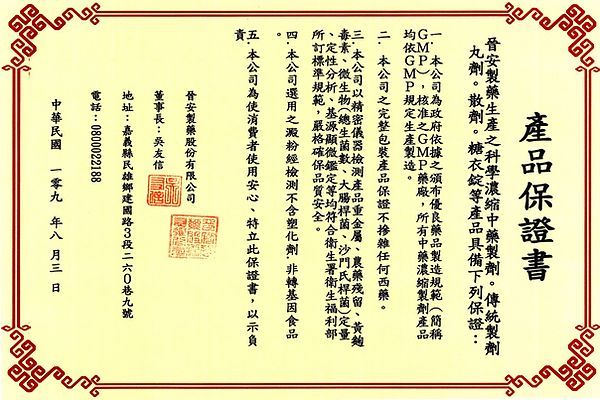 產品保證書
晉安製藥生產之科學濃縮中藥製劑。傳統製劑
丸劑。散劑。糖衣錠等產品具備下列保證：
一. 本公司為政府依據之頒布優良藥品製造規範（簡稱
GMP），核准之GMP藥廠，所有中藥濃縮製劑產品
均依GMP規定生產製造。
二. 本公司之完整包裝產品保證不摻雜任何西藥。
三.本公司以精密儀器檢測產品重金屬、農藥殘留、黃麴
毒素、微生物(總生菌數、大腸桿菌、沙門氏桿菌)定量
、定性分析、基源顯微鑑定等均符合衛生署衛生福利部
所訂標準規範，嚴格確保品質安全。
四.本公司選用之澱粉經檢測不含塑化劑.非轉基因食品
。
五.本公司為使消費者使用安心、特立此保證書，以示負
責。
晉安製藥股份有限公司
董事長：吳友信
地址：嘉義縣民雄鄉建國路3段二六0巷九號
電話：0800022188
中華民國 一零九 年八月三日